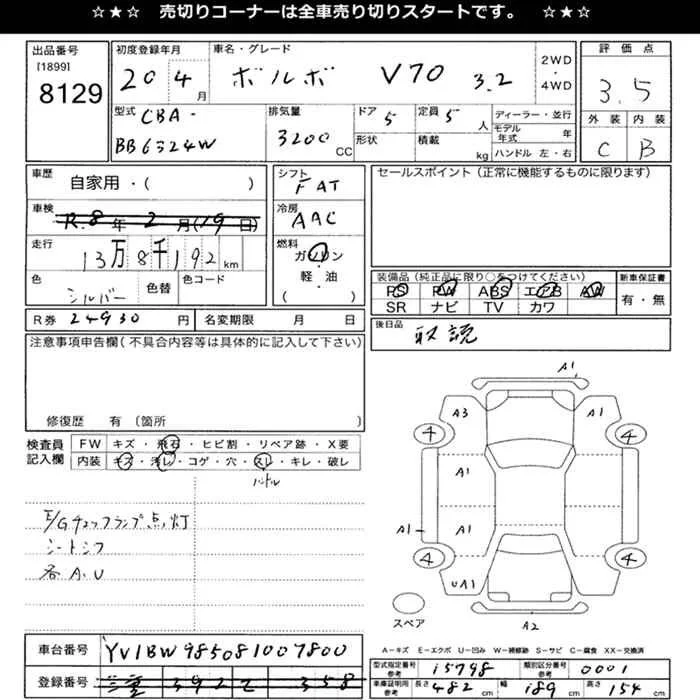 ☆★☆ 売切りコーナーは全車売り切りスタートです。 ☆★☆
出品番号
[1899]
8129
初度登録年月
20 4月
車名・グレード
ボルボ V70 3.2
2WD
・
4WD
評価点
3.5
型式
CBA-
BB6324W
排気量
3200 CC
ドア
5
形状
定員
5 人
積載
kg
ディーラー・並行
モデル年式 年
ハンドル 左・右
外装 内装
C B
車歴
自家用・( )
車検
R.8年2月(19日)
走行
13万8千192km
色
シルバー
色替
色コード
シフト
FAT
冷房
AAC
燃料
ガソリン
・
軽・油
( )
セールスポイント(正常に機能するものに限ります)
装備品(純正品に限り○をつけてください)
PS PW ABS エアB AW
SR ナビ TV カワ
新車保証書
有・無
R券 24930円
名変期限 月 日
後日品
取説
注意事項申告欄(不具合内容等は具体的に記入して下さい)
修復歴 有(箇所 )
検査員
記入欄
FW キズ・飛石・ヒビ割・リペア跡・X要
内装 キズ・汚レ・コゲ・穴・スレ・キレ・破レ
ハンドル
E/Gチェックランプ点灯
シートシワ
各A.U
A1
A3 A1
4 4
A1
A1 A1
4 4
UA1
A2
スペア
A-キズ E-エクボ U-凹み W-補修跡 S-サビ C-腐食 XX-交換済
車台番号 YV1BW985081007800
登録番号 三重 392 て 358
型式指定番号
参考
15798
類別区分番号
参考
0001
車庫証明用
参考
長さ 482 cm 幅 189 cm 高さ 154 cm